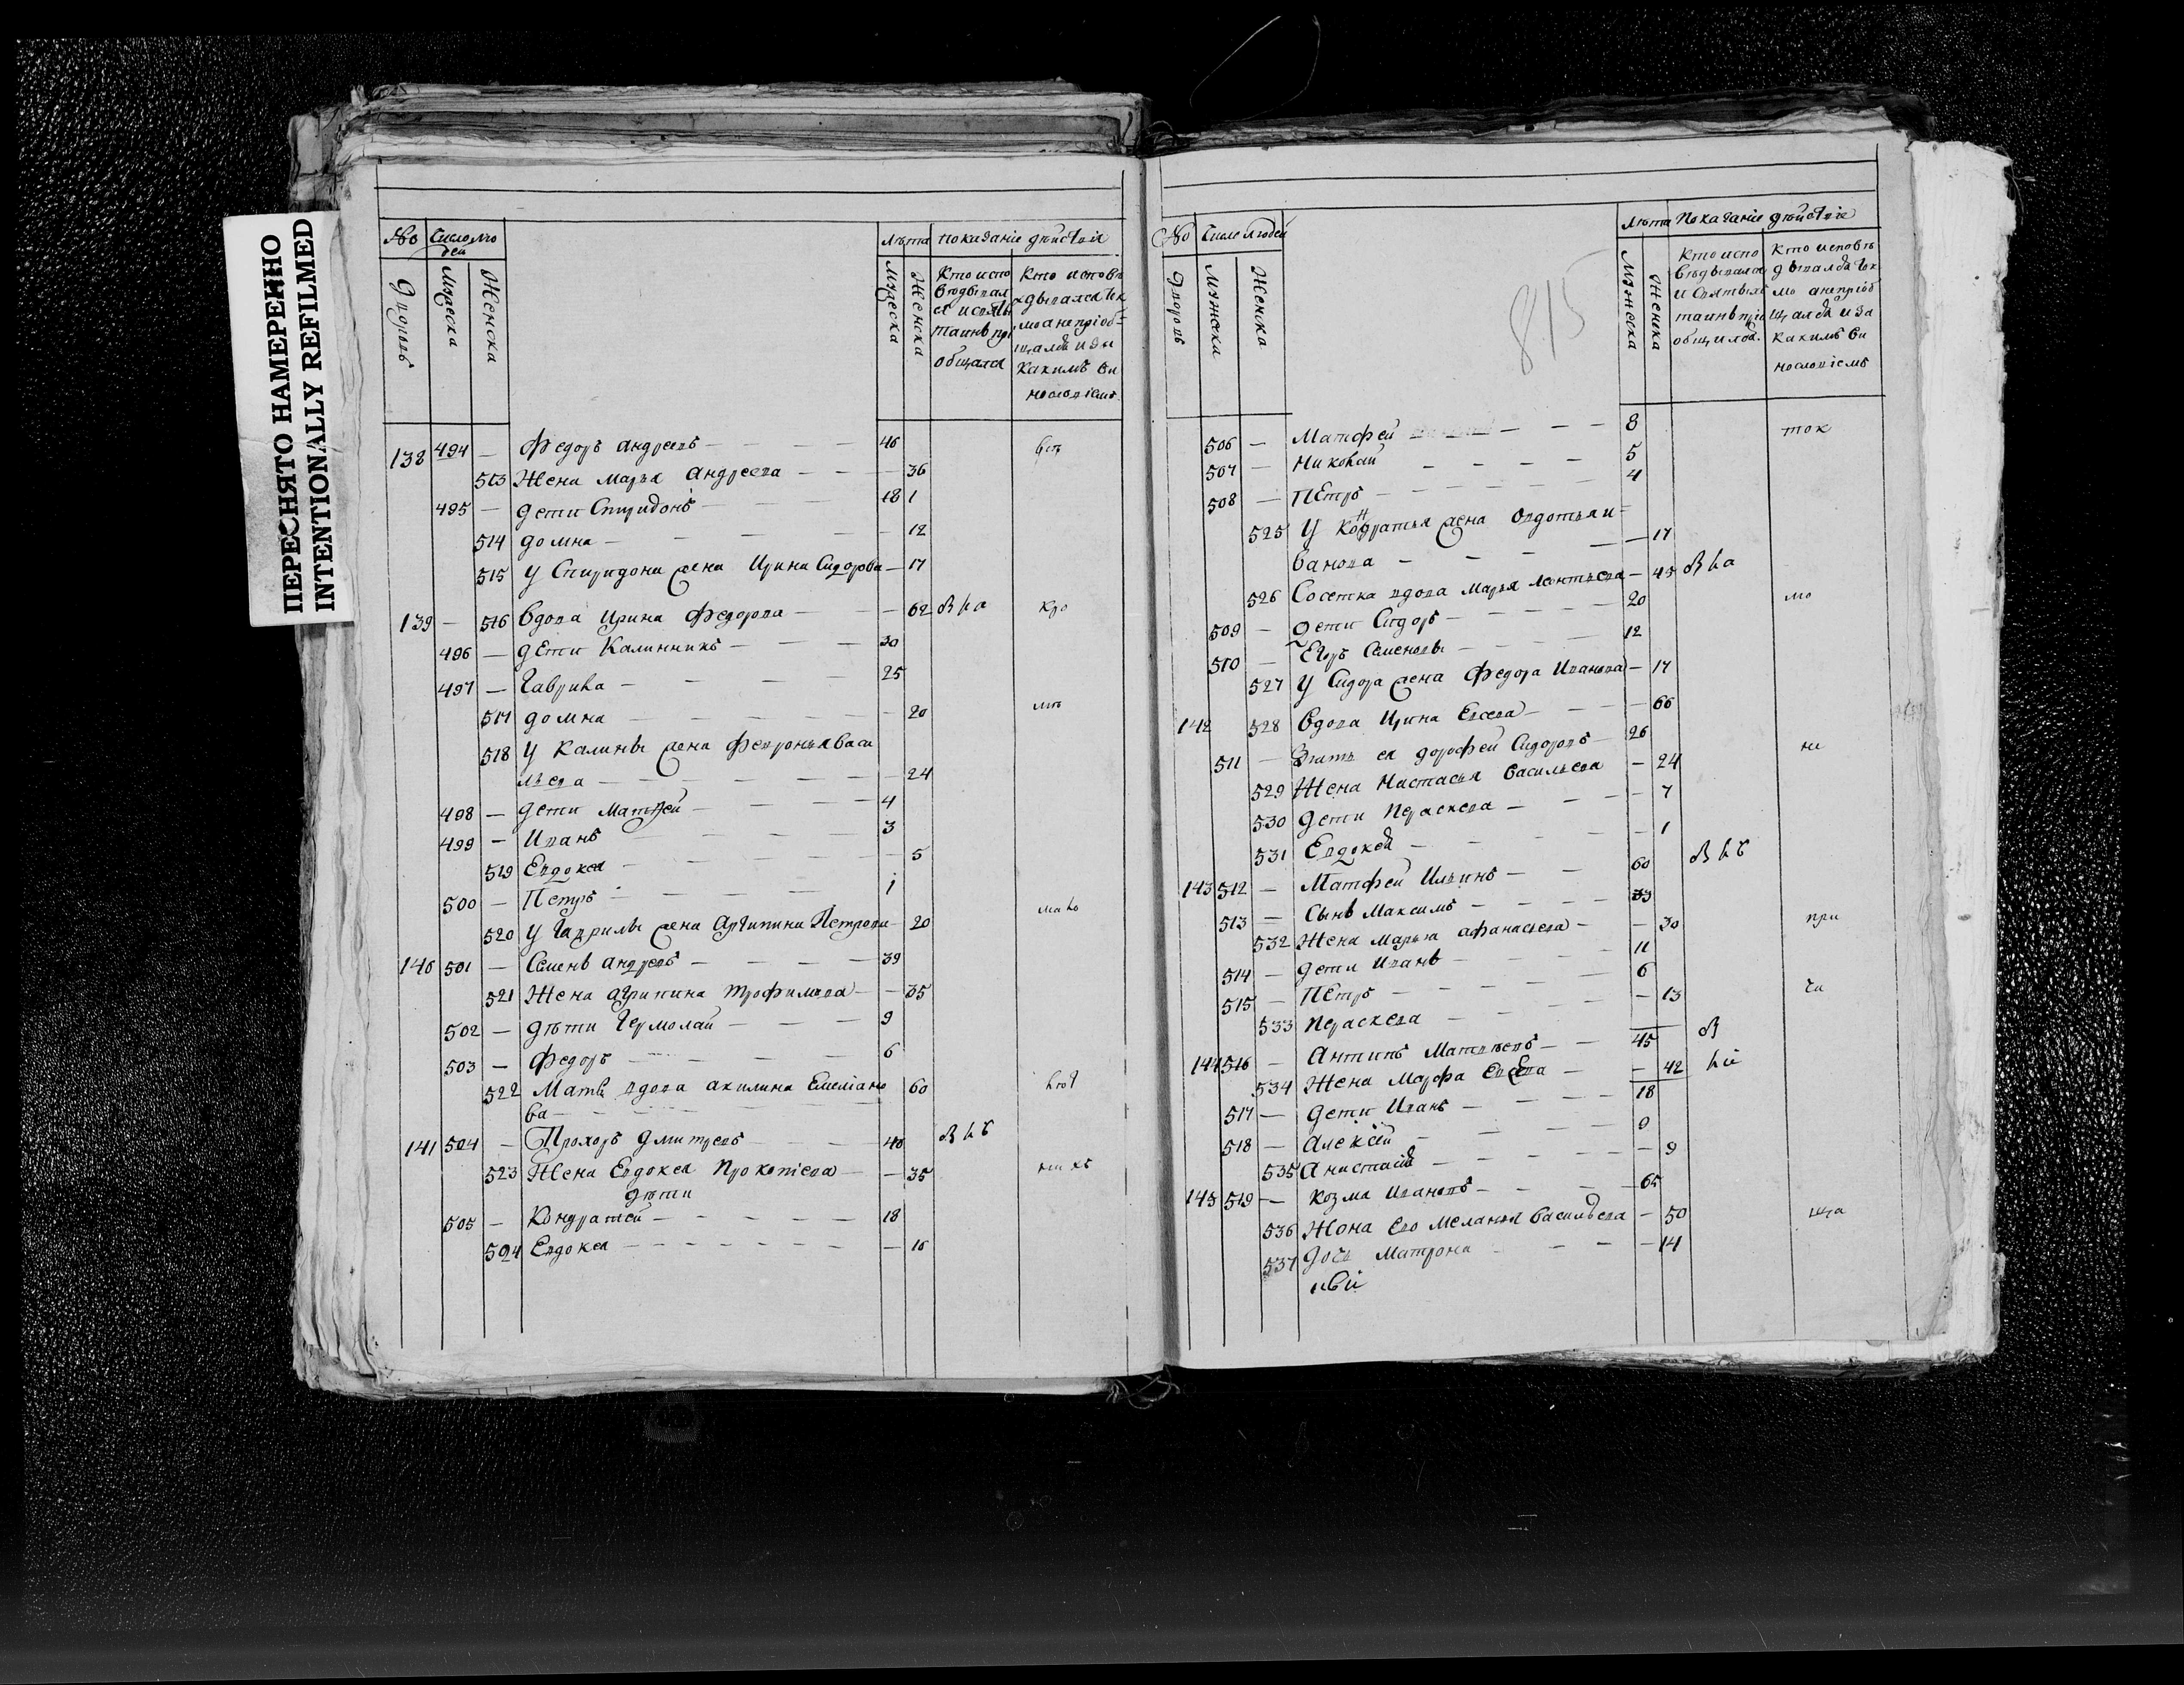 ПЕРЕСНЯТО НАМЕРЕННО
INTENTIONALLY REFILMED
№ Число лю
дей
Лѣта показаніе дѣйствія
Дворовъ Мужеска Женска
Мужеска Женска
Кто испо
вѣдывал
ся и святы
таинъ прі
общался
Кто исповѣ
дывался
мо а непріоб=
щался и за
какимъ ви
нословіемъ
138 494 — Федоръ Андреевъ — 46
513 Жена Марья Андреева — 36
495 — дети Спиридонъ — 18
514 домна — 12
515 У Спиридона жена Ирина Сидорова — 17
139 — 516 Вдова Ирина Федорова — 62
496 — дети Калинникъ — 30
497 — Гаврила — 25
517 домна — 20
518 У Калины жена Февронья Васи
льева — 24
498 — дети Матвей — 4
499 — Иванъ — 3
519 Евдокея — 5
500 — Петръ — 1
520 У Гаврилы жена Агрипина Петрова — 20
140 501 — Семенъ Андреевъ — 39
521 Жена Агрипина Трофимова — 35
502 — дѣти Гермолай — 9
503 — Федоръ — 6
522 Мать вдова Акилина Емеліано
ва — 60
141 504 — Прохоръ Дмитревъ — 40
523 Жена Евдокея Прокопіева — 35
дѣти
505 — Кондратей — 18
524 Евдокея — 16
№ Число людей
Лѣта Показаніе дѣйствія
Дворовъ Мужеска Женска
815
Мужеска Женска
Кто испо
вѣдывался
и святыхъ
таинъ прі
общился.
Кто исповѣ
дывался
мо а непріоб
щался и за
какимъ ви
нословіемъ
506 — Матфей — 8 ток
507 — Николай — 5
508 — Петръ — 4
525 У Кондратья жена Овдотья и=
ванова — 17
526 Сосетка вдова Марья Леонтьева — 45
509 — дети Сидоръ — 20
510 — Егоръ Семеновы — 12
527 У Сидора жена Федора Иванова — 17
142 528 Вдова Ирина Евсева — 66
511 — Зять ея Дорофей Сидоровъ 26 ни
529 Жена Настасья Васильева — 24
530 дети Параскева — 7
531 Евдокея — 1
143 512 — Матфей Ильинъ — 60
513 — Сынъ Максимъ — 33
532 Жена Марья Афанасьева — 30 при
514 — дети Иванъ — 11
515 — Петръ — 6
533 Параскева — 13
144 516 — Антипъ Матвѣевъ — 45
534 Жена Марфа Евсева — 42
517 — дети Иванъ — 18
518 — Алексѣй — 9
535 Анистасія — 9
145 519 — Козма Ивановъ — 65
536 Жона Его Меланья Васильева — 50 ща
537 дочь Матрона — 14